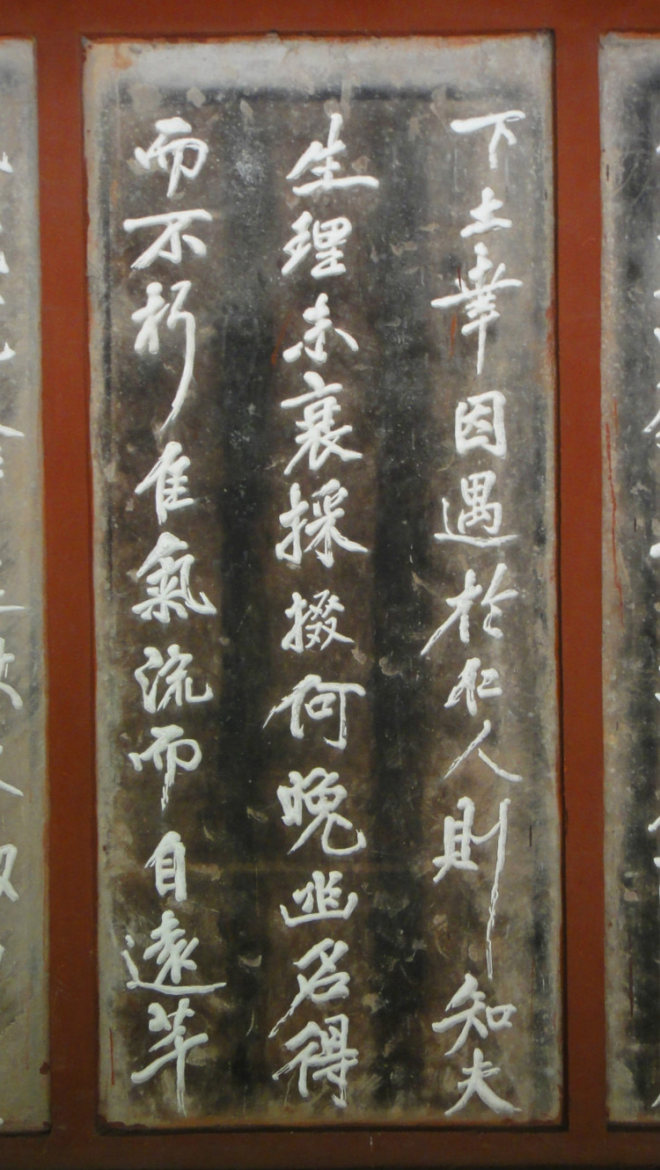 下土幸因遇於仁人則知夫
生理未衰採掇何晚名得
而不朽佳氣流而自遠